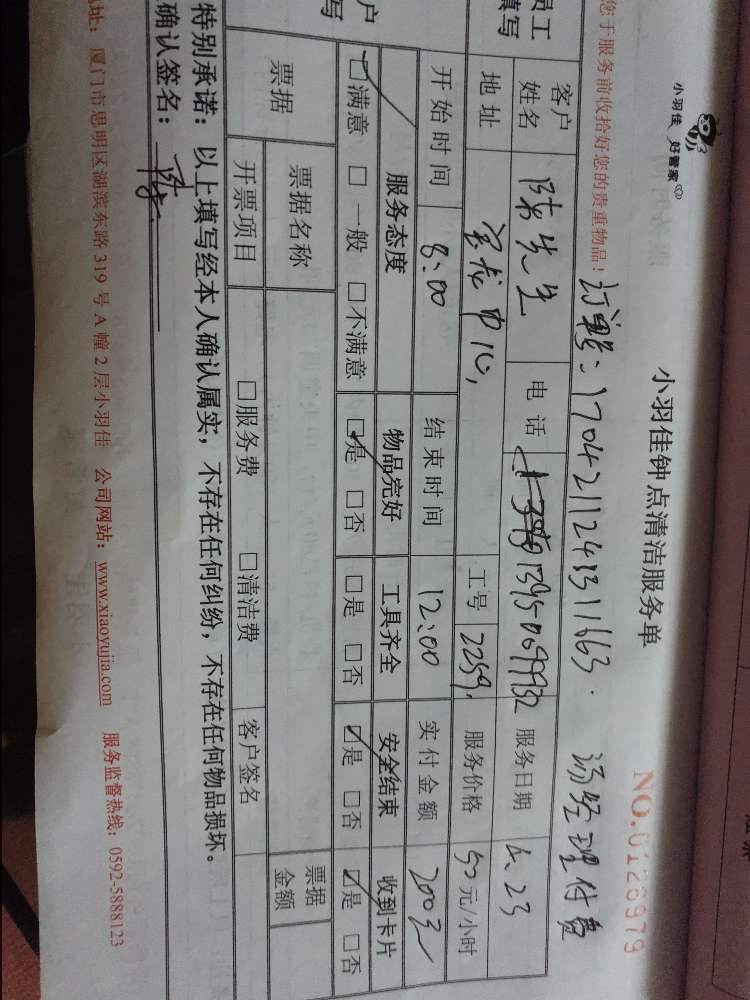 小羽佳 好管家
小羽佳钟点清洁服务单
NO.0128979
您于服务前收拾好您的贵重物品!
订单号:17042112431311663. 汤经理付费
员工
填写
客户
姓名 陈先生 电话 13950699932 服务日期 4.23
地址 金龙中心, 工号 2259. 服务价格 50 元/小时
开始时间 8:00 结束时间 12:00 实付金额 200元
户
写
服务态度 物品完好 工具齐全 安全结束 收到卡片
☑满意 □一般 □不满意 ☑是 □否 □是 □否 ☑是 □否 ☑是 □否
票据 票据名称 票据
金额
开票项目 □服务费 □清洁费 客户签名
特别承诺:以上填写经本人确认属实,不存在任何纠纷,不存在任何物品损坏。
确认签名:陈
地址:厦门市思明区湖滨东路 319 号 A 幢 2 层小羽佳 公司网站:www.xiaoyujia.com 服务监督热线:0592-5888123